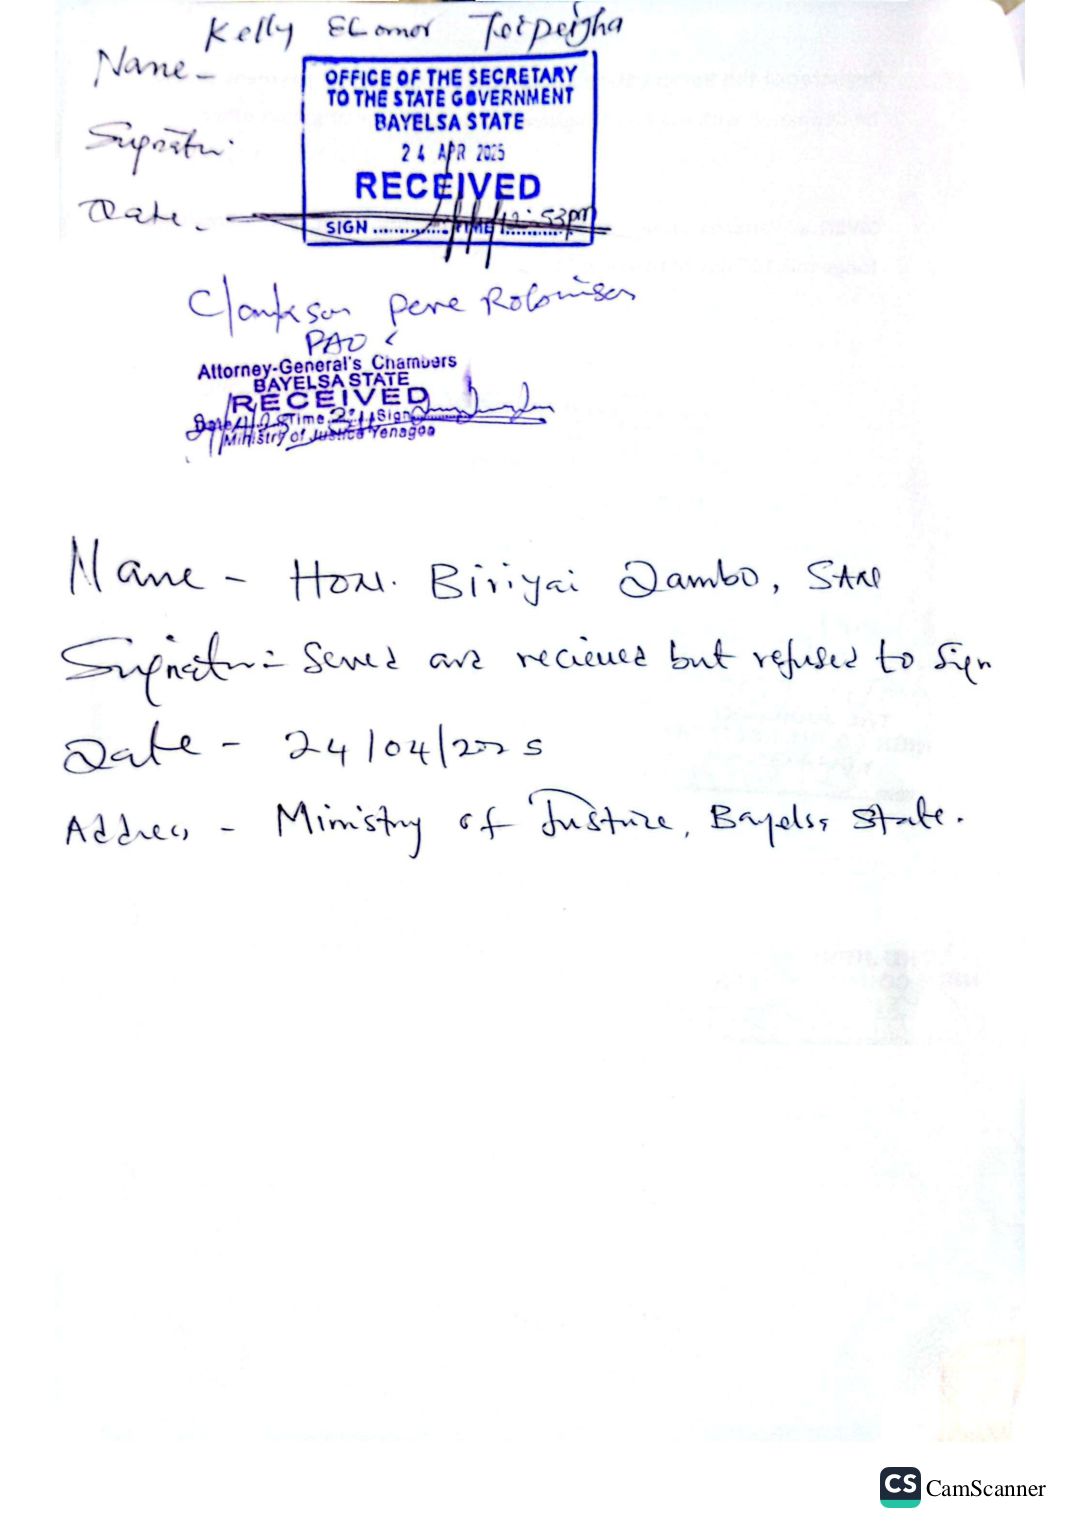 Kelly Ebomor Torpeigha
Name -
Signatu.
OFFICE OF THE SECRETARY
TO THE STATE GOVERNMENT
BAYELSA STATE
24 APR 2025
RECEIVED
Date.
SIGN .............. TIME 12:53pm
Clarkson Pere
PAO
Attorney-General's Chambers
BAYELSA STATE
RECEIVED
Date Time Sign
Ministry of Justice Yenagoa
Name - Hon. Biriyai Dambo, SAN
Signatu: Served and recieved but refused to sign
Date - 24/04/2025
Address - Ministry of Justice, Bayelsa State.
CS CamScanner